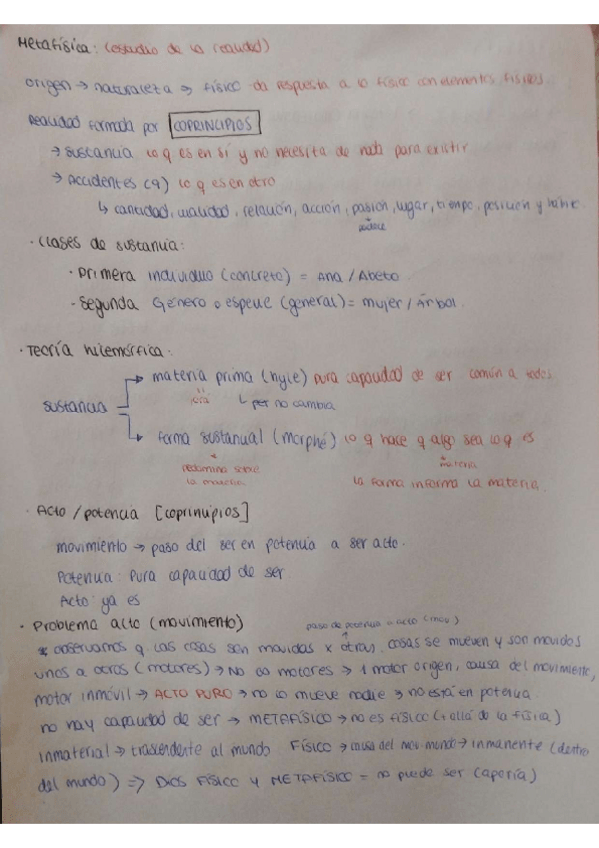 Metafísica: (estudio de la realidad)
origen → naturaleza → físico da respuesta a lo físico con elementos físicos
Realidad formada por COPRINCIPIOS
→ sustancia lo q es en sí y no necesita de nada para existir
→ Accidentes (9) lo q es en otro
↳ cantidad, cualidad, relación, acción, pasión, lugar, tiempo, posición y hábito.
padece
· Clases de sustancia:
· Primera individuo (concreto) = Ana / Abeto
- Segunda Género o especie (general) = mujer / Árbol
· Teoría hilemórfica:
materia prima (hyle) pura capacidad de ser común a todos
↳ per no cambia
sustancia
forma sustancial (morphé) lo q hace q algo sea lo q es
predomina sobre materia
la materia la forma informa la materia
· Acto / potencia [coprincipios]
movimiento → paso del ser en potencia a ser acto.
Potencia: Pura capacidad de ser
Acto: ya es
· Problema acto (movimiento) paso de potencia a acto (mov)
* observamos q las cosas son movidas x otras, cosas se mueven y son movidos
unos a otros (motores) → No ∞ motores → 1 motor origen, causa del movimiento,
motor inmóvil → ACTO PURO → no lo mueve nadie → no está en potencia
no hay capacidad de ser → METAFÍSICO → no es físico (+ allá de la física)
inmaterial → trascendente al mundo FÍSICO → causa del mov. mundo → inmanente (dentro
del mundo) ⇒ DIOS FÍSICO Y METAFÍSICO = no puede ser (aporía)